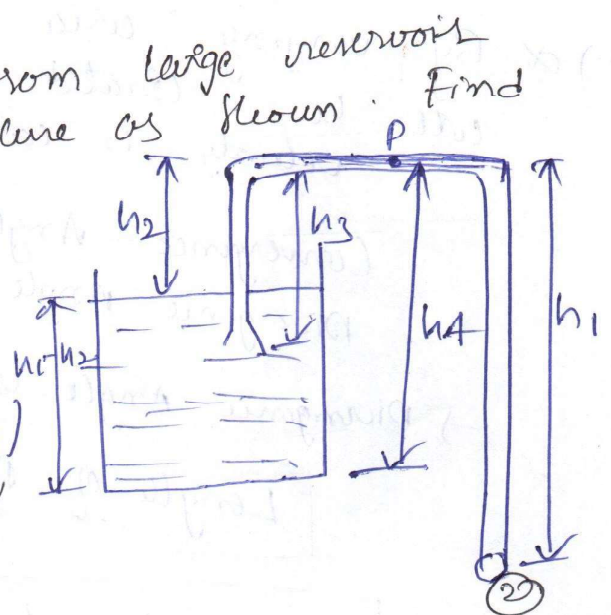 som large reservoir
cure as shown. Find
P
h2
h3
h4
h1
h1-h2
2